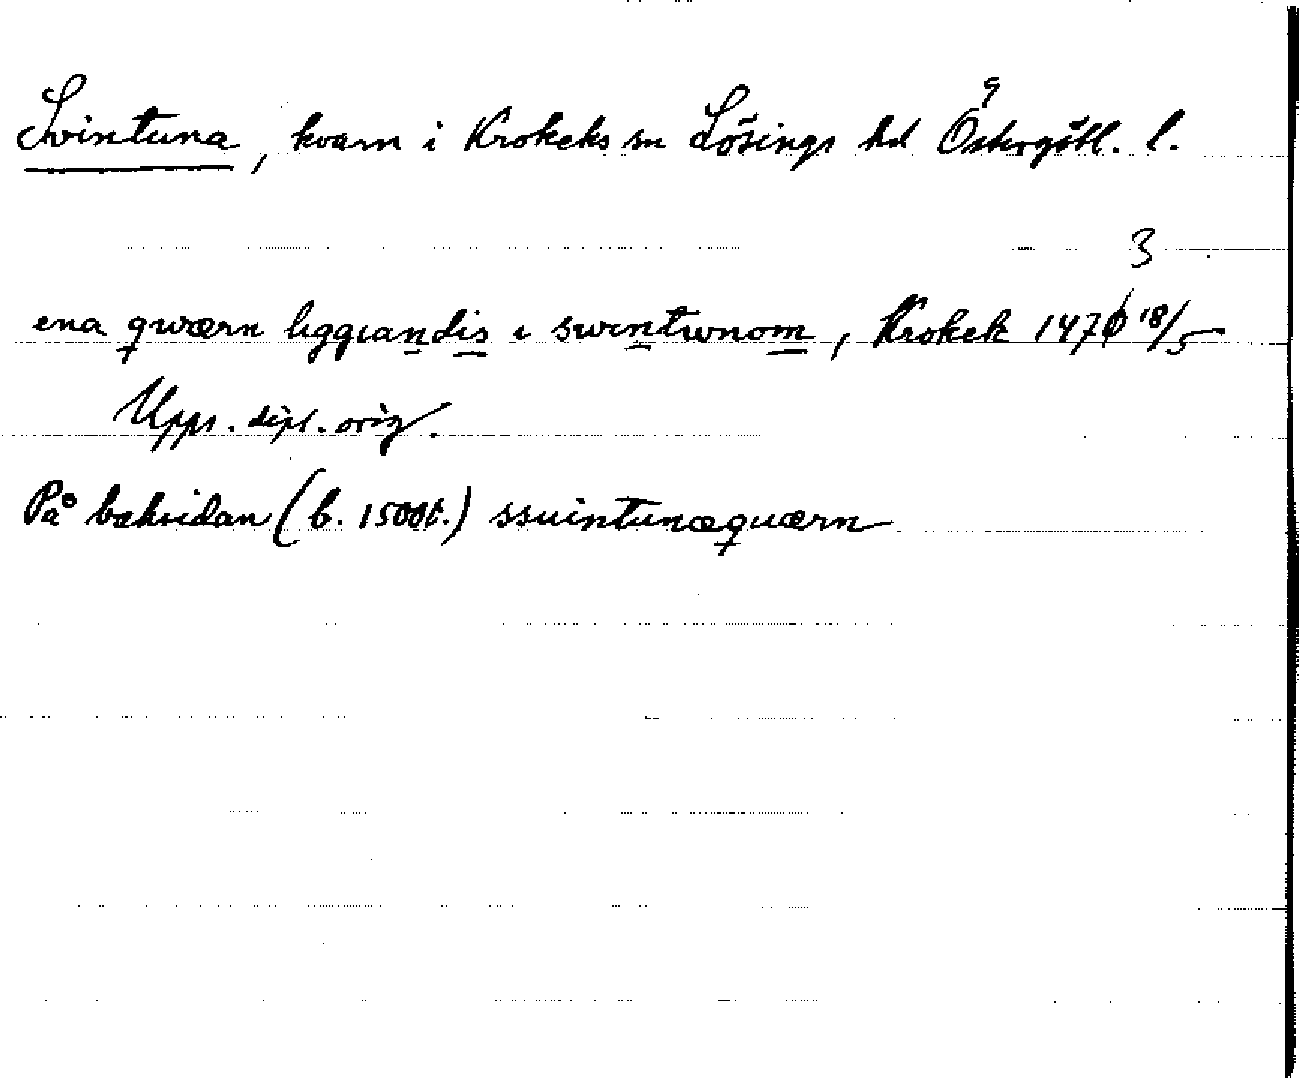 Svintuna, kvarn i Krokeks sn Lösings hd Östergötl. l.
3
ena qwærn liggiandis i swintwnom, Krokek 1470 18/5
Upps. dipl. orig.
På baksidan (b. 1500t.) ssuintunæquærn